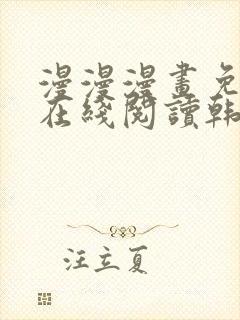 漫漫漫畫免
在綫閱讀韩
汪立夏